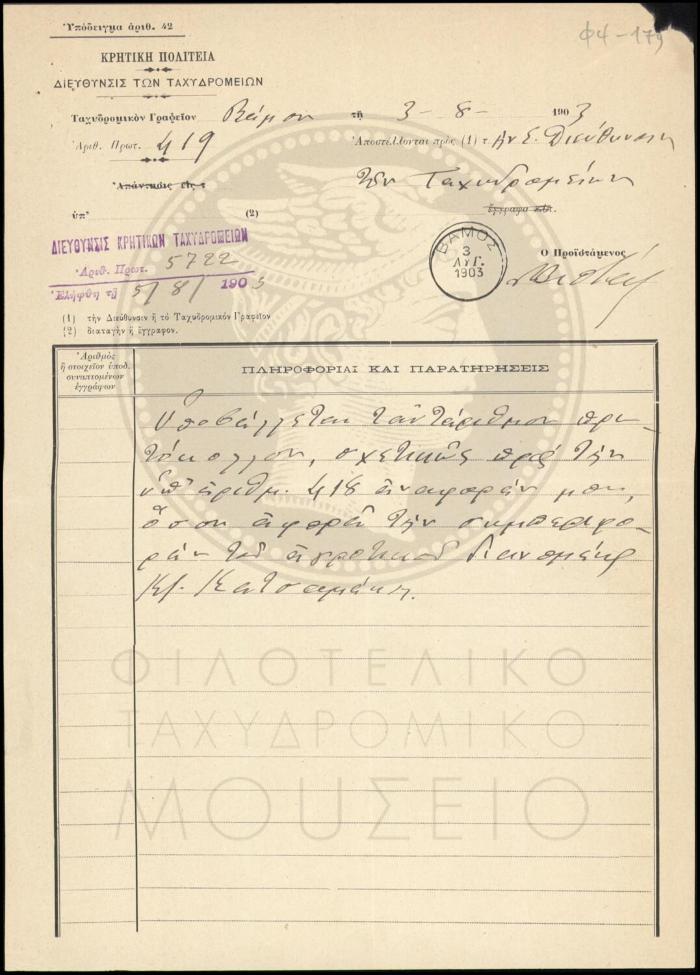 Ὑπόδειγμα ἀριθ. 42
Φ4-179
ΚΡΗΤΙΚΗ ΠΟΛΙΤΕΙΑ
ΔΙΕΥΘΥΝΣΙΣ ΤΩΝ ΤΑΧΥΔΡΟΜΕΙΩΝ
Ταχυδρομικὸν Γραφεῖον Βάμου τῇ 3-8-1903
Ἀριθ. Πρωτ. 419 Ἀποστέλλονται πρὸς (1) τ Διεύθυνσιν
Ἀπάντησις εἰς τ
τῶν Ταχυδρομείων
ἔγγραφα
ὑπ' (2)
ΔΙΕΥΘΥΝΣΙΣ ΚΡΗΤΙΚΩΝ ΤΑΧΥΔΡΟΜΕΙΩΝ
Ἀριθ. Πρωτ. 5722
Ἐλήφθη τῇ 5/8/1903
ΒΑΜΟΣ
3
ΑΥΓ.
1903
Ο Προϊστάμενος
(1) τὴν Διεύθυνσιν ἢ τὸ Ταχυδρομικὸν Γραφεῖον
(2) διαταγὴν ἢ ἔγγραφον.
Ἀριθμὸς
ἢ στοιχεῖον ὑποδ.
συναπτομένων
ἐγγράφων
ΠΛΗΡΟΦΟΡΙΑΙ ΚΑΙ ΠΑΡΑΤΗΡΗΣΕΙΣ
Ὑποβάλλεται ταὐτάριθμον πρω-
τόκολλον, σχετικῶς πρὸς τὴν
ὑπ' ἀριθμ. 418 ἀναφοράν μου,
ὅσον ἀφορᾷ τὴν συμπεριφο-
ρὰν τοῦ ἀγροτικοῦ διανομέως
Κατσαμάκη.
ΦΙΛΟΤΕΛΙΚΟ
ΤΑΧΥΔΡΟΜΙΚΟ
ΜΟΥΣΕΙΟ